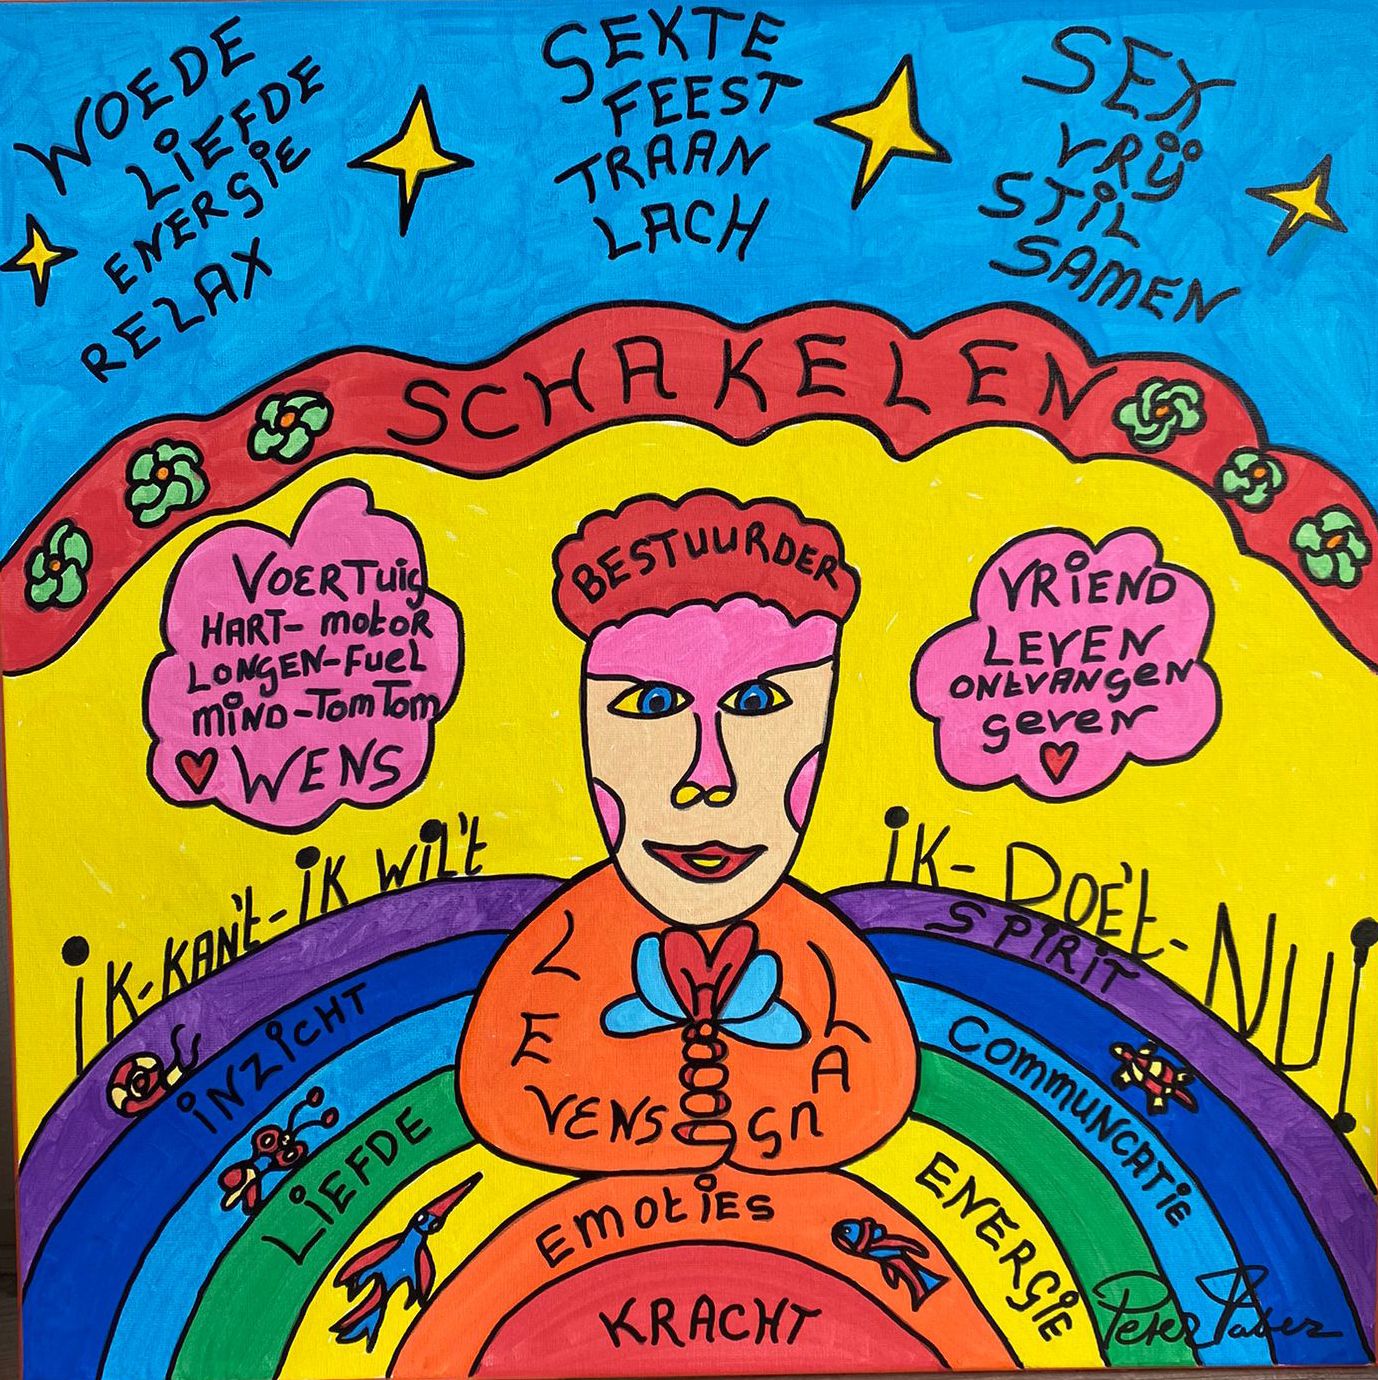 WOEDE
LiEFDE
ENERGiE
RELAX
SEKTE
FEEST
TRAAN
LACH
SEX
VRÿ
STiL
SAMEN
SCHAKELEN
BESTUURDER
VOERTuig
HART- motoR
LONgEN-FueL
miND-TomTom
WENS
VRiEND
LEVEN
ONtVANgeN
geven
iK-KAN't-iK WiL't
iK-DOE't-NU!
SPiRiT
iNZiCHT
COmmUNCATiE
LiEFDE
ENERGiE
LEVENS
LAng
EmotiES
KRACHT